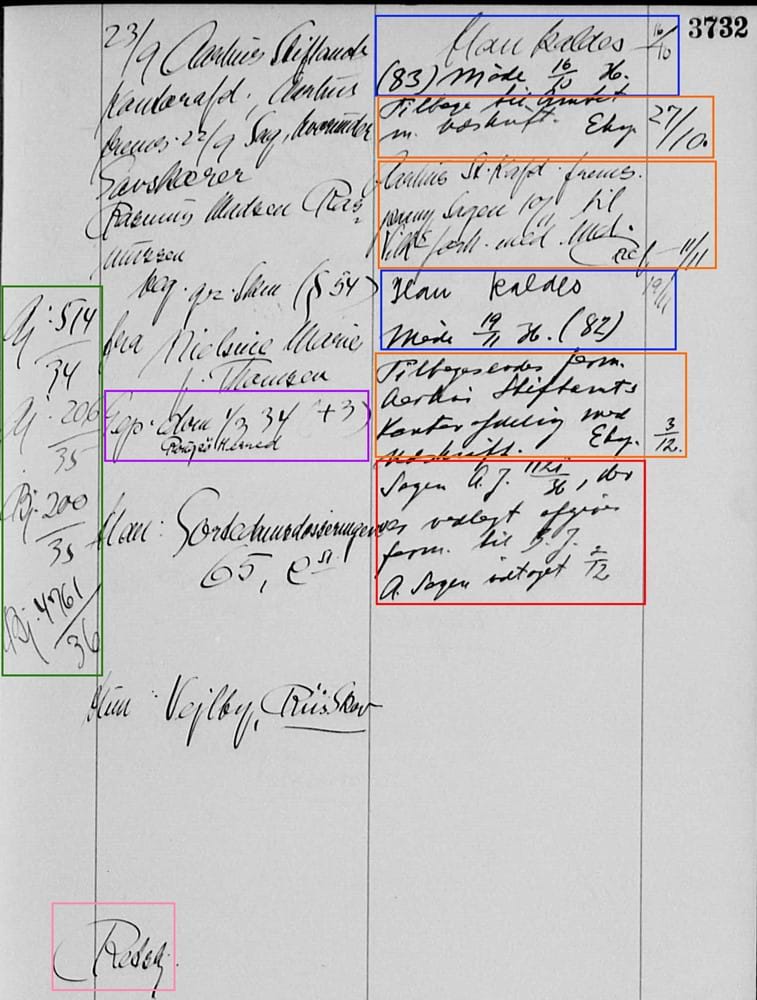 3732
23/9 Aarhus Stiftamts
Kontorafd., Aarhus
frems. 22/9 Sag, hvorunder
Savskærer
Rasmus Madsen Ras-
mussen
beg. gz. Skm (§ 54)
fra Nielsine Marie
f. Thomsen
Sep. dom 1/3 34 (+3)
Rougsø Herred
Man: Gartnerdosseringen
65, e st
Hun: Vejlby, Riisskov
Aj: 514
34
Aj. 206
35
Bj. 200
35
Bj. 4761
36
Man kaldes 16/10
(83) Møde 16/10 36.
Tilbage til Amtet
m. Udskrift. Ehg. 27/10.
Aarhus St. Kafd. frems.
paany Sagen til
fors. med. Md.
11/11
Man kaldes 19/11
Møde 19/11 36. (82)
Tilbagesendes herm.
Aarhus Stiftamts
Kontorafdeling med
Udskrift. Ehg. 3/12.
Sagen A.J. 36, der
er vedlagt afgives
herm. til B.J.
A. Sagen udtaget 2/12